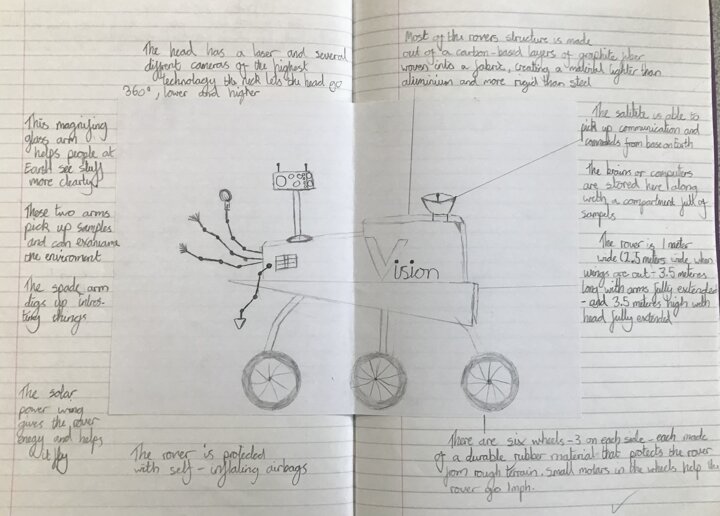 The head has a laser and several
diffrent cameras of the highest
technology the neck lets the head go
360°, lower and higher
This magnifing
glass arm
helps people at
Earth see stuff
more clearly
These two arms
pick up samples
and can exanuame
the enviroment
The spade arm
digs up intres-
ting things
The solar
power wing
gives the rover
enegy and helps
it fly
The rover is protected
with self-inflating airbags
Vision
Most of the rovers structure is made
out of a carbon-based layers of graphite fiber
woven into a fabric, creating a material lighter than
aluminium and more rigid than steel
The satilite is able to
pick up communication and
commands from base on Earth
The brains or computers
are stored here along
with a compartment full of
sampels
The rover is 1 meter
wide (2.5 meters wide when
wings are out - 3.5 metres
long with arms fully extended
- and 3.5 meters high with
head fully extended
There are six wheels - 3 on each side - each made
of a durable rubber material that protects the rover
from rough terrain. Small motars in the wheels help the
rover go 1mph.